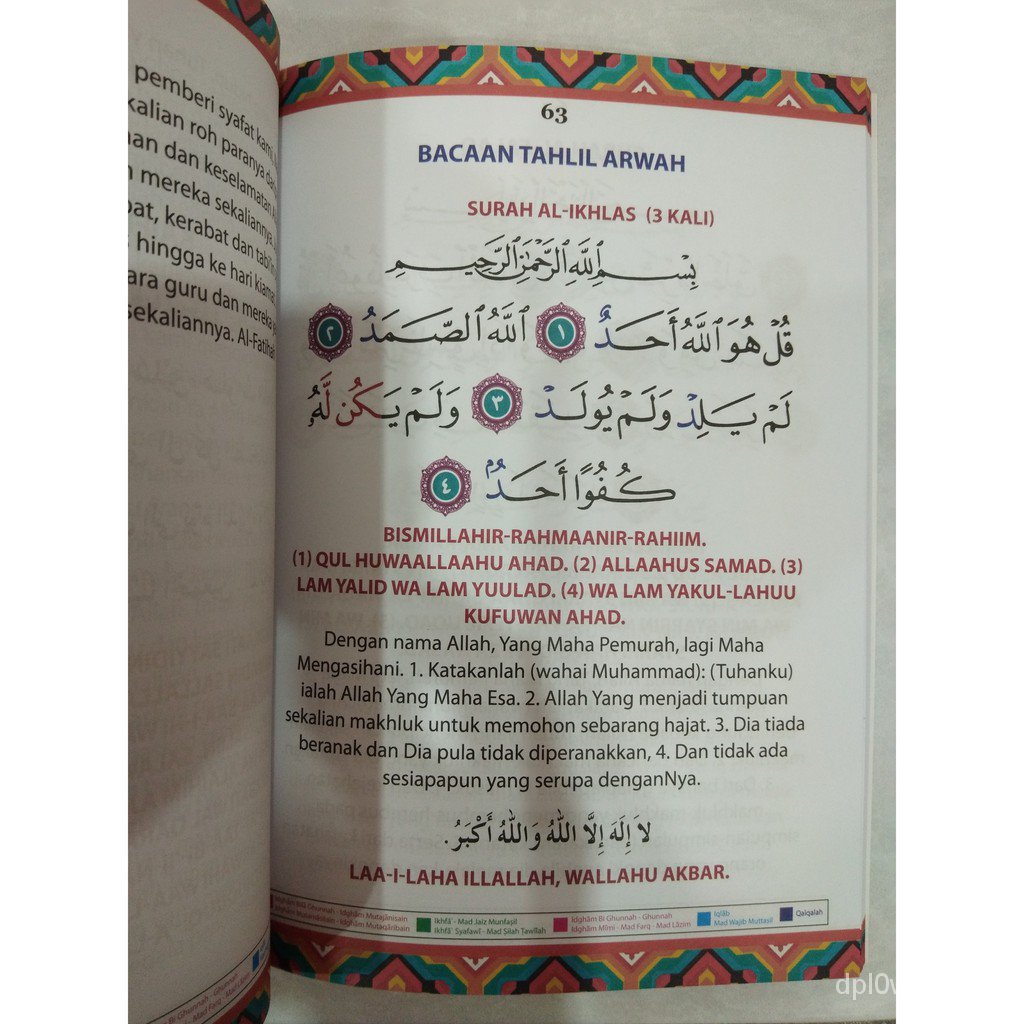 pemberi syafat kami,
kalian roh paranya dan
dan keselamatan
mereka sekaliannya.
kerabat dan tabi'in
hingga ke hari kiamat
guru dan mereka
sekaliannya. Al-Fatihah
63
BACAAN TAHLIL ARWAH
SURAH AL-IKHLAS (3 KALI)
بِسْمِ ٱللَّهِ ٱلرَّحْمَٰنِ ٱلرَّحِيمِ
قُلْ هُوَ ٱللَّهُ أَحَدٌ ١ ٱللَّهُ ٱلصَّمَدُ ٢
لَمْ يَلِدْ وَلَمْ يُولَدْ ٣ وَلَمْ يَكُن لَّهُۥ
كُفُوًا أَحَدٌۢ ٤
BISMILLAHIR-RAHMAANIR-RAHIIM.
(1) QUL HUWAALLAAHU AHAD. (2) ALLAAHUS SAMAD. (3)
LAM YALID WA LAM YUULAD. (4) WA LAM YAKUL-LAHUU
KUFUWAN AHAD.
Dengan nama Allah, Yang Maha Pemurah, lagi Maha
Mengasihani. 1. Katakanlah (wahai Muhammad): (Tuhanku)
ialah Allah Yang Maha Esa. 2. Allah Yang menjadi tumpuan
sekalian makhluk untuk memohon sebarang hajat. 3. Dia tiada
beranak dan Dia pula tidak diperanakkan, 4. Dan tidak ada
sesiapapun yang serupa denganNya.
لاَ إِلَهَ إِلَّا اللهُ وَاللهُ أَكْبَرُ.
LAA-I-LAHA ILLALLAH, WALLAHU AKBAR.
Idghām Bilā Ghunnah - Idghām Mutajānisain
Idghām Mutamāthilain - Idghām Mutaqāribain
Ikhfā' - Mad Jaiz Munfaṣil
Ikhfā' Syafawī - Mad Silah Tawīlah
Idghām Bi Ghunnah - Ghunnah
Idghām Mīmī - Mad Farq - Mad Lāzim
Iqlāb
Mad Wajib Muttasil
Qalqalah
Bi Ghunnah - Ghunnah
Mad Farq - Mad Lāzim